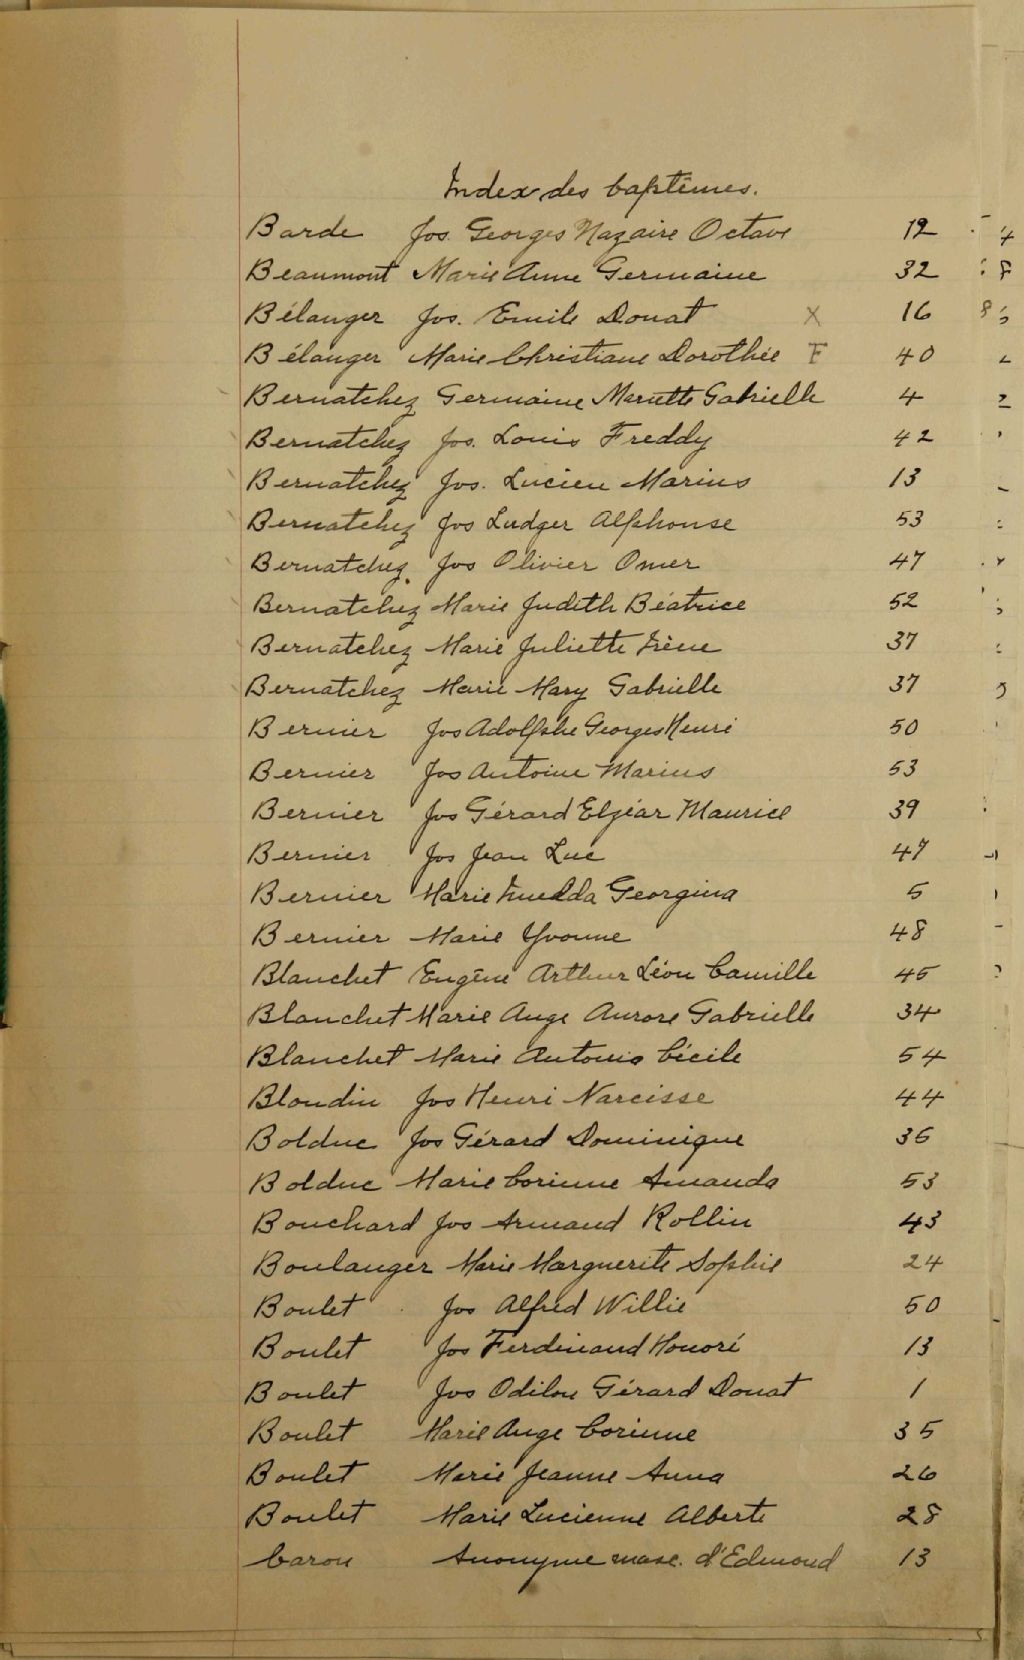 Index des baptêmes.
Barde Jos. Georges Nazaire Octave 12
Beaumont Marie Anne Germaine 32
Bélanger Jos. Emile Donat X 16
Bélanger Marie Christiane Dorothée F 40
Bernatchez Germaine Gabrielle 4
Bernatchez Jos. Louis Freddy 42
Bernatchez Jos. Lucien Marius 13
Bernatchez Jos Ludger Alphonse 53
Bernatchez Jos Olivier Omer 47
Bernatchez Marie Judith Béatrice 52
Bernatchez Marie Juliette Irène 37
Bernatchez Marie Mary Gabrielle 37
Bernier Jos Adolphe Georges Henri 50
Bernier Jos Antoine Marius 53
Bernier Jos Gérard Elzéar Maurice 39
Bernier Jos Jean Luc 47
Bernier Marie Georgina 5
Bernier Marie Yvonne 48
Blanchet Eugène Arthur Léon Camille 45
Blanchet Marie Ange Aurore Gabrielle 34
Blanchet Marie Antonia Cécile 54
Blondin Jos Henri Narcisse 44
Bolduc Jos Gérard Dominique 36
Bolduc Marie Corinne Amanda 53
Bouchard Jos Armand Rollin 43
Boulanger Marie Marguerite Sophie 24
Boulet Jos Alfred Willie 50
Boulet Jos Ferdinand Honoré 13
Boulet Jos Odilon Gérard Donat 1
Boulet Marie Ange Corinne 35
Boulet Marie Jeanne Anna 26
Boulet Marie Lucienne Alberte 28
Caron Anonyme masc. d'Edmond 13